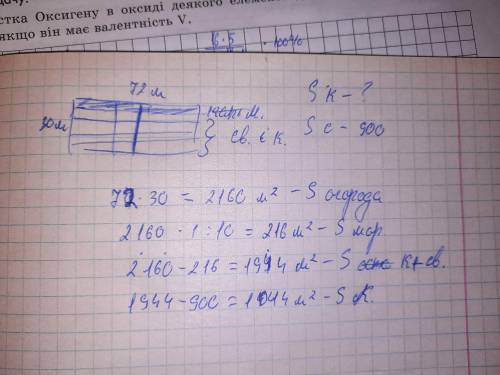 стка Оксигену в оксиді деякого елемен
якщо він має валентність V.
16·5 · 100%
72 м
S к - ?
30м
м.
св. і к.
S с - 900
72·30 = 2160 м² - S огорода
2160 · 1 : 10 = 216 м² - S мор.
2160 - 216 = 1944 м² - S к+св.
1944 - 900 = 1044 м² - S к.